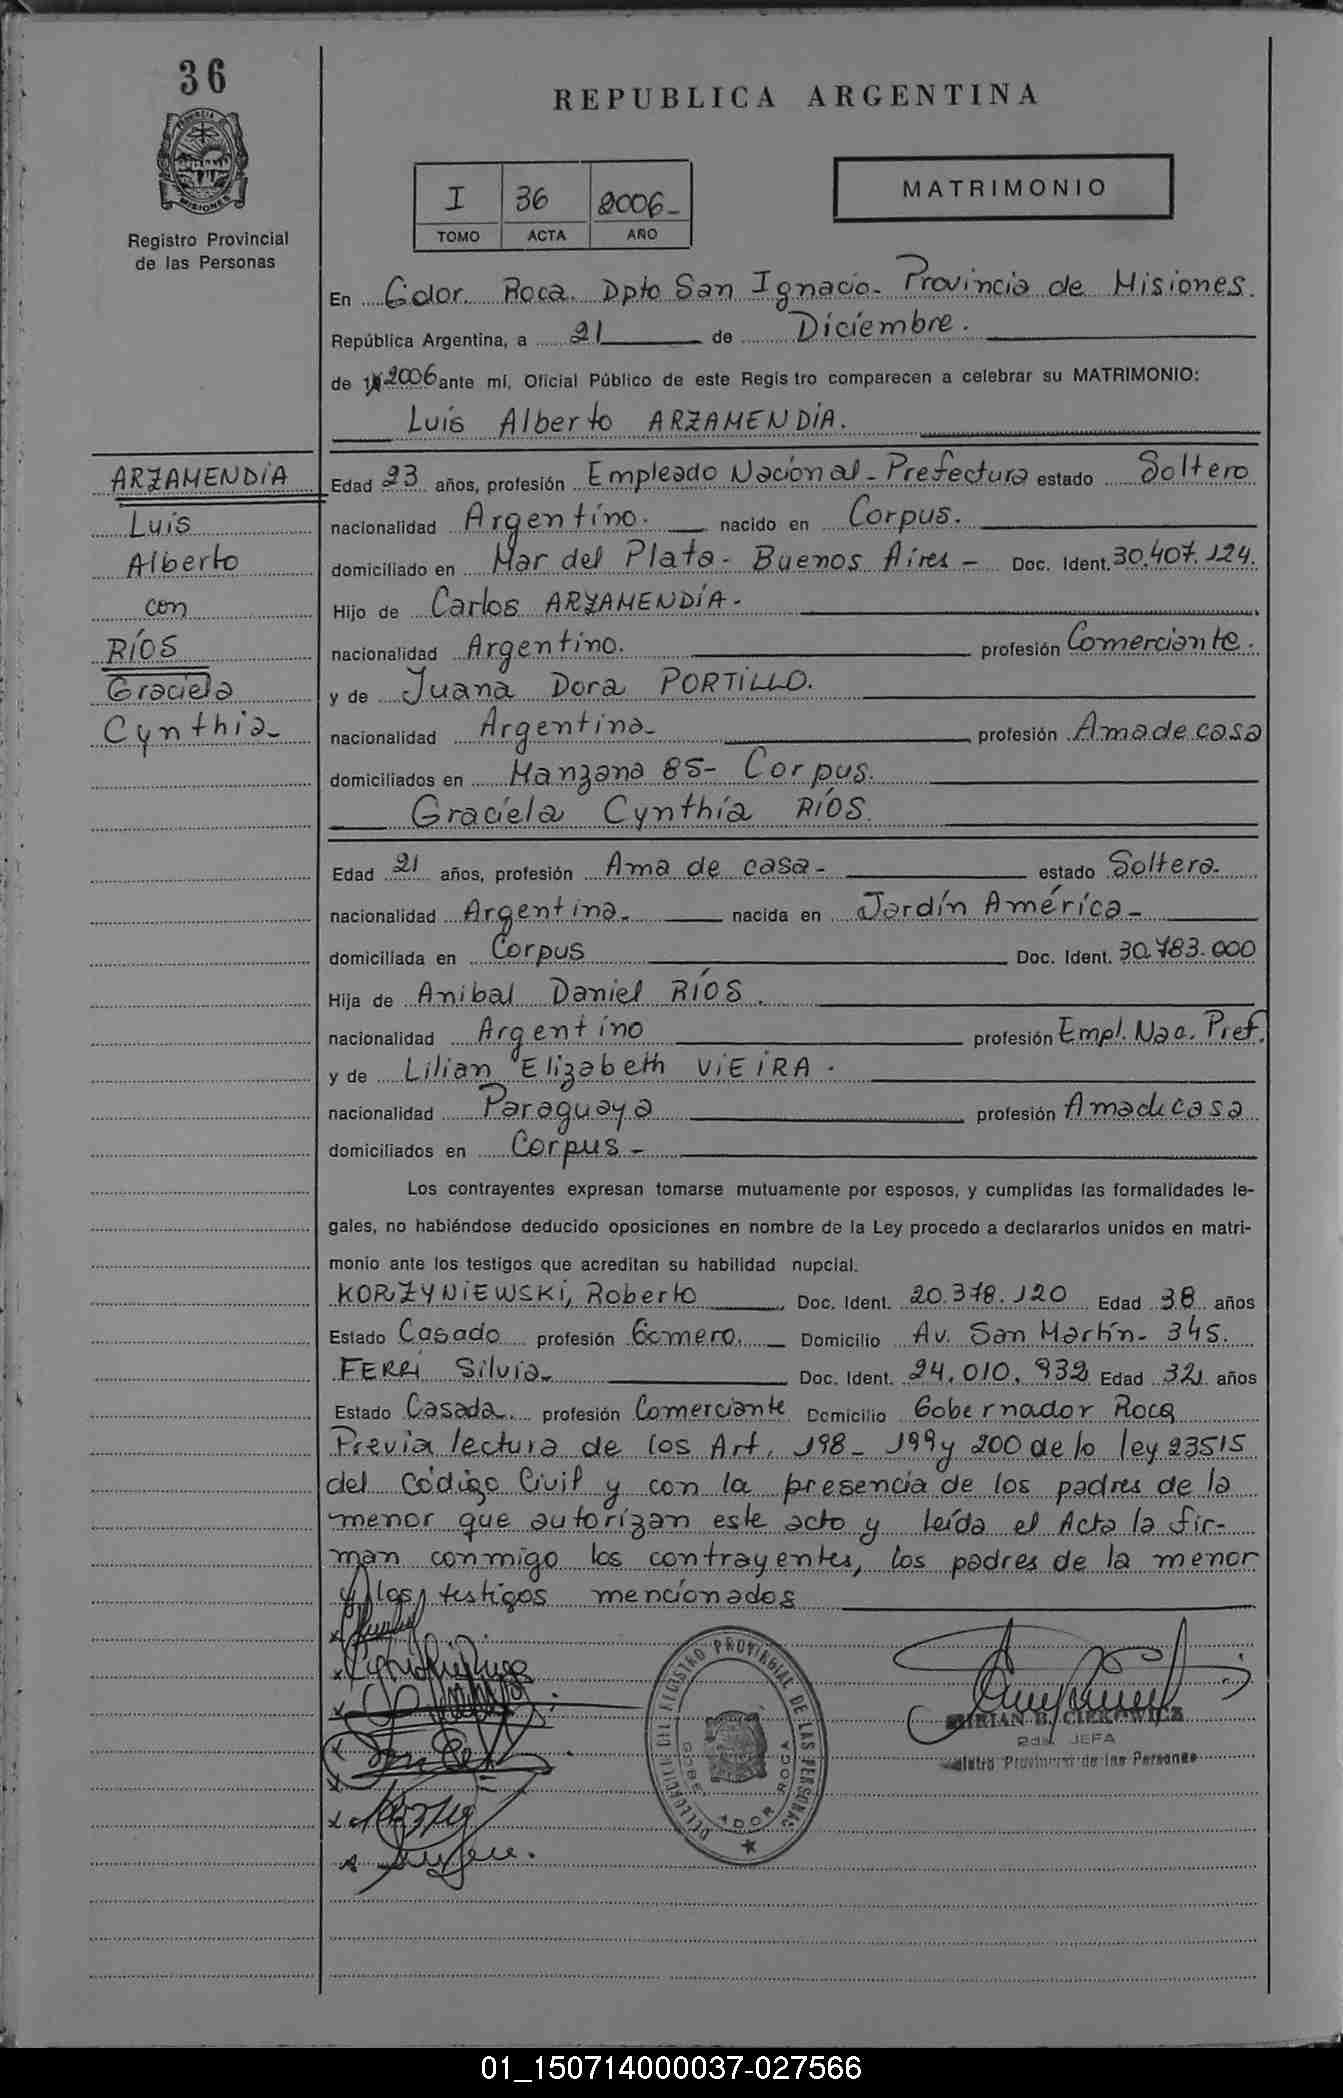 36
PROVINCIA DE
MISIONES
Registro Provincial
de las Personas
REPUBLICA ARGENTINA
I 36 2006-
TOMO ACTA AÑO
MATRIMONIO
En Gdor. Roca. Dpto San Ignacio- Provincia de Misiones.
República Argentina, a 21 de Diciembre.
de 2006 ante mí, Oficial Público de este Registro comparecen a celebrar su MATRIMONIO:
Luis Alberto ARZAMENDIA.
ARZAMENDIA
Luis
Alberto
con
RÍOS
Graciela
Cynthia-
Edad 23 años, profesión Empleado Nacional - Prefectura estado Soltero
nacionalidad Argentino. nacido en Corpus.
domiciliado en Mar del Plata - Buenos Aires - Doc. Ident. 30.407.124.
Hijo de Carlos ARZAMENDÍA.
nacionalidad Argentino. profesión Comerciante.
y de Juana Dora PORTILLO.
nacionalidad Argentina- profesión Ama de casa
domiciliados en Manzana 85- Corpus.
Graciela Cynthia RÍOS.
Edad 21 años, profesión Ama de casa- estado Soltera.
nacionalidad Argentina. nacida en Jardín América-
domiciliada en Corpus Doc. Ident. 30.783.000
Hija de Anibal Daniel RÍOS.
nacionalidad Argentino profesión Empl. Nac. Pref.
y de Lilian Elizabeth VIEIRA.
nacionalidad Paraguaya profesión Ama de casa
domiciliados en Corpus-
Los contrayentes expresan tomarse mutuamente por esposos, y cumplidas las formalidades le-
gales, no habiéndose deducido oposiciones en nombre de la Ley procedo a declararlos unidos en matri-
monio ante los testigos que acreditan su habilidad nupcial.
KORZYNIEWSKI, Roberto Doc. Ident. 20.378.120 Edad 38 años
Estado Casado profesión Gomero. Domicilio Av. San Martín- 345.
FERRI Silvia- Doc. Ident. 24.010.932 Edad 32 años
Estado Casada profesión Comerciante Domicilio Gobernador Roca
Previa lectura de los Art. 198- 199 y 200 de la ley 23515
del Código Civil y con la presencia de los padres de la
menor que autorizan este acto y leída el Acta la fir-
man conmigo los contrayentes, los padres de la menor
y los testigos mencionados
DELEGACION DEL REGISTRO PROVINCIAL DE LAS PERSONAS
GOBERNADOR ROCA
MIRIAN B. CIEKOWICZ
2da. JEFA
Registro Provincial de las Personas
01_150714000037-027566